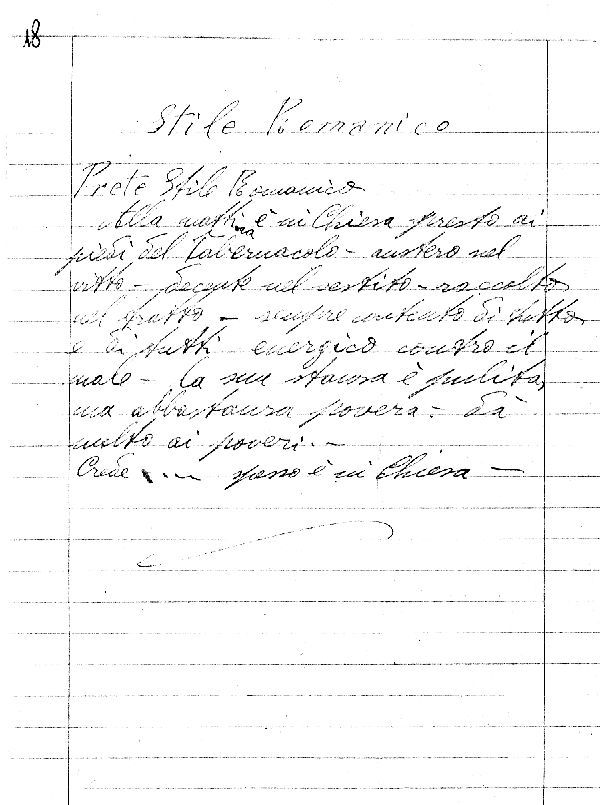 18
Stile Romanico
Prete Stile Romanico
Alla mattina è in Chiesa presto ai
piedi del Tabernacolo - austero nel
vitto - decente nel vestito - raccolto
nel tratto - sempre contento di tutto
e di tutti energico contro il
male - la sua stanza è pulita,
ma abbastanza povera - dà
molto ai poveri. -
Crede .... spesso è in Chiesa -